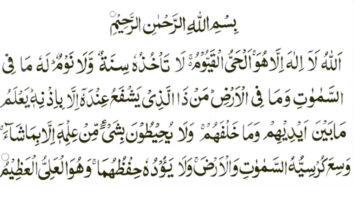 بِسْمِ اللهِ الرَّحْمٰنِ الرَّحِيْمِ
اَللهُ لَآ اِلٰهَ اِلَّا هُوَ ۚ اَلْحَىُّ الْقَيُّوْمُ ۚ لَا تَاْخُذُهٗ سِنَةٌ وَّلَا نَوْمٌ ؕ لَهٗ مَا فِى
السَّمٰوٰتِ وَمَا فِى الْاَرْضِ ؕ مَنْ ذَا الَّذِىْ يَشْفَعُ عِنْدَهٗۤ اِلَّا بِاِذْنِهٖ ؕ يَعْلَمُ
مَا بَيْنَ اَيْدِيْهِمْ وَمَا خَلْفَهُمْ ۚ وَلَا يُحِيْطُوْنَ بِشَىْءٍ مِّنْ عِلْمِهٖۤ اِلَّا بِمَا شَآءَ ۚ
وَسِعَ كُرْسِيُّهُ السَّمٰوٰتِ وَالْاَرْضَ ۚ وَلَا يَـُٔوْدُهٗ حِفْظُهُمَا ۚ وَهُوَ الْعَلِىُّ الْعَظِيْمُ